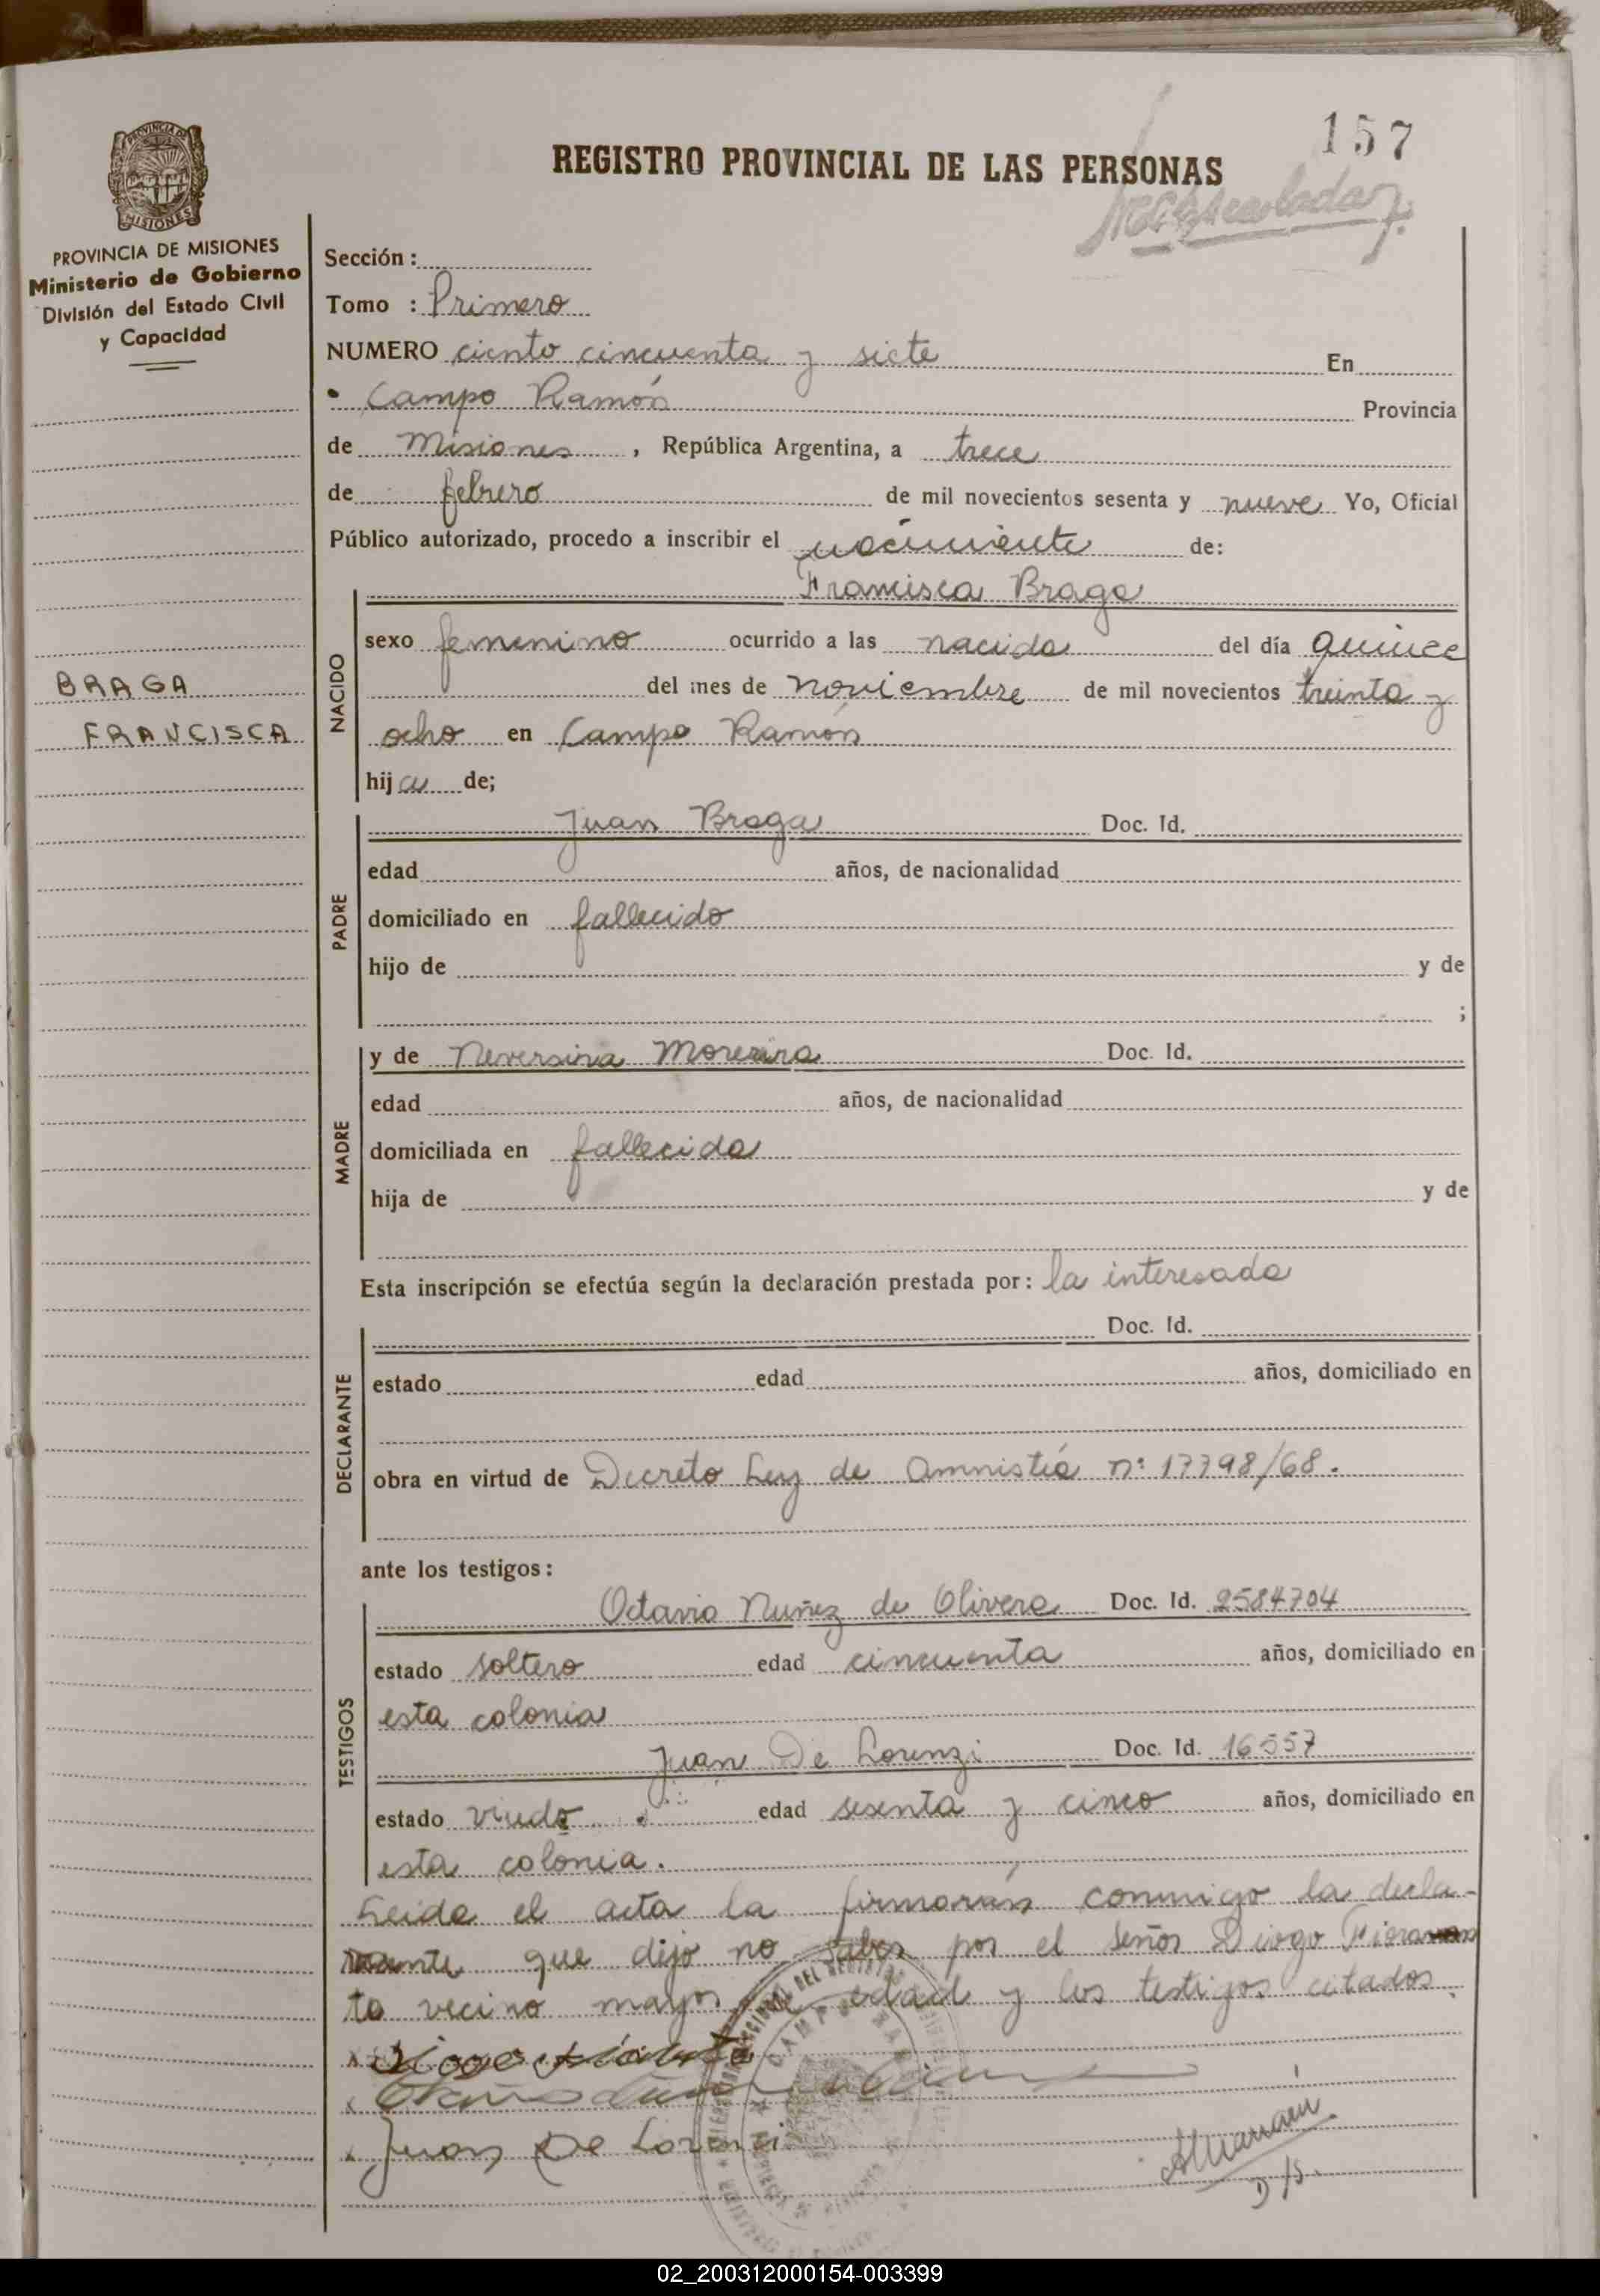 157
REGISTRO PROVINCIAL DE LAS PERSONAS
PROVINCIA DE MISIONES
Ministerio de Gobierno
División del Estado Civil
y Capacidad
Sección :
Tomo : Primero
NUMERO ciento cincuenta y siete En
Campo Ramón Provincia
de Misiones , República Argentina, a trece
de febrero de mil novecientos sesenta y nueve Yo, Oficial
Público autorizado, procedo a inscribir el nacimiento de:
Francisca Braga
NACIDO
sexo femenino ocurrido a las nacida del día quince
del mes de noviembre de mil novecientos treinta y
ocho en Campo Ramón
hija de;
BRAGA
FRANCISCA
PADRE
Juan Braga Doc. Id.
edad años, de nacionalidad
domiciliado en fallecido
hijo de y de
;
MADRE
y de Neversina Moreira Doc. Id.
edad años, de nacionalidad
domiciliada en fallecida
hija de y de
Esta inscripción se efectúa según la declaración prestada por: la interesada
DECLARANTE
Doc. Id.
estado edad años, domiciliado en
obra en virtud de Decreto Ley de amnistía nº 17798/68.
ante los testigos:
TESTIGOS
Octavio Nuñez de Olivera Doc. Id. 2584704
estado soltero edad cincuenta años, domiciliado en
esta colonia
Juan De Lorenzi Doc. Id. 16557
estado viudo edad sesenta y cinco años, domiciliado en
esta colonia.
Leida el acta la firmarán conmigo la decla-
rante que dijo no saber por el señor Diogo
to vecino mayor de edad y los testigos citados.
Juan De Lorenzi
02_200312000154-003399